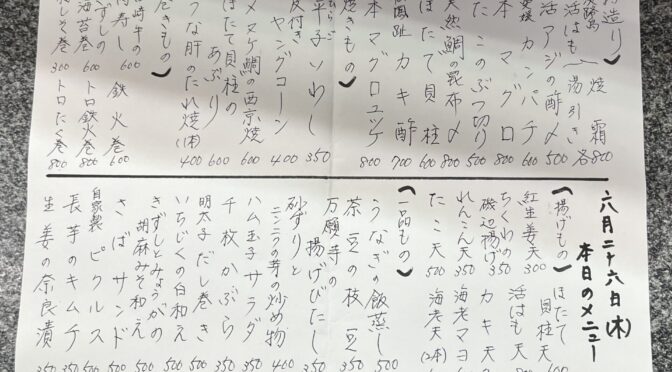 六月二十六日(木)
本日のメニュー
(揚げもの)
ほたて貝柱天 600
紅生姜天 300
活はも天
ちくわの磯辺揚げ 350
カキ天
れんこん天 350
海老マヨ
たこ天 500
海老天(2本)
(一品もの)
うなぎの飯蒸し 500
茶豆の枝豆 350
万願寺の揚げびたし 350
砂ずりとニンニクの芽の炒め物 400
ハム玉子サラダ 350
千枚かぶら 350
明太子だし巻き 500
いちじくの白和え 500
きずしとみょうがの胡麻みそ和え 500
さばサンド 500
自家製ピクルス 350
長芋のキムチ 350
生姜の奈良漬 350
造り)
活はも(焼霜 湯引き) 各800
活アジの酢〆 500
カンパチ 600
本マグロ
たこのぶつ切り 500
天然鯛の昆布〆 800
ほたて貝柱 600
カキ酢 700
本マグロユッケ 800
焼きもの)
平子いわし 350
皮付きヤングコーン 400
メヌケ鯛の西京焼 600
ほたて貝柱のあぶり 600
うな肝のたれ焼(1本) 400
きもの)
鉄火巻 600
トロ鉄火巻 800
トロたく巻 800
寿し 600
海苔巻 500
しく巻 300